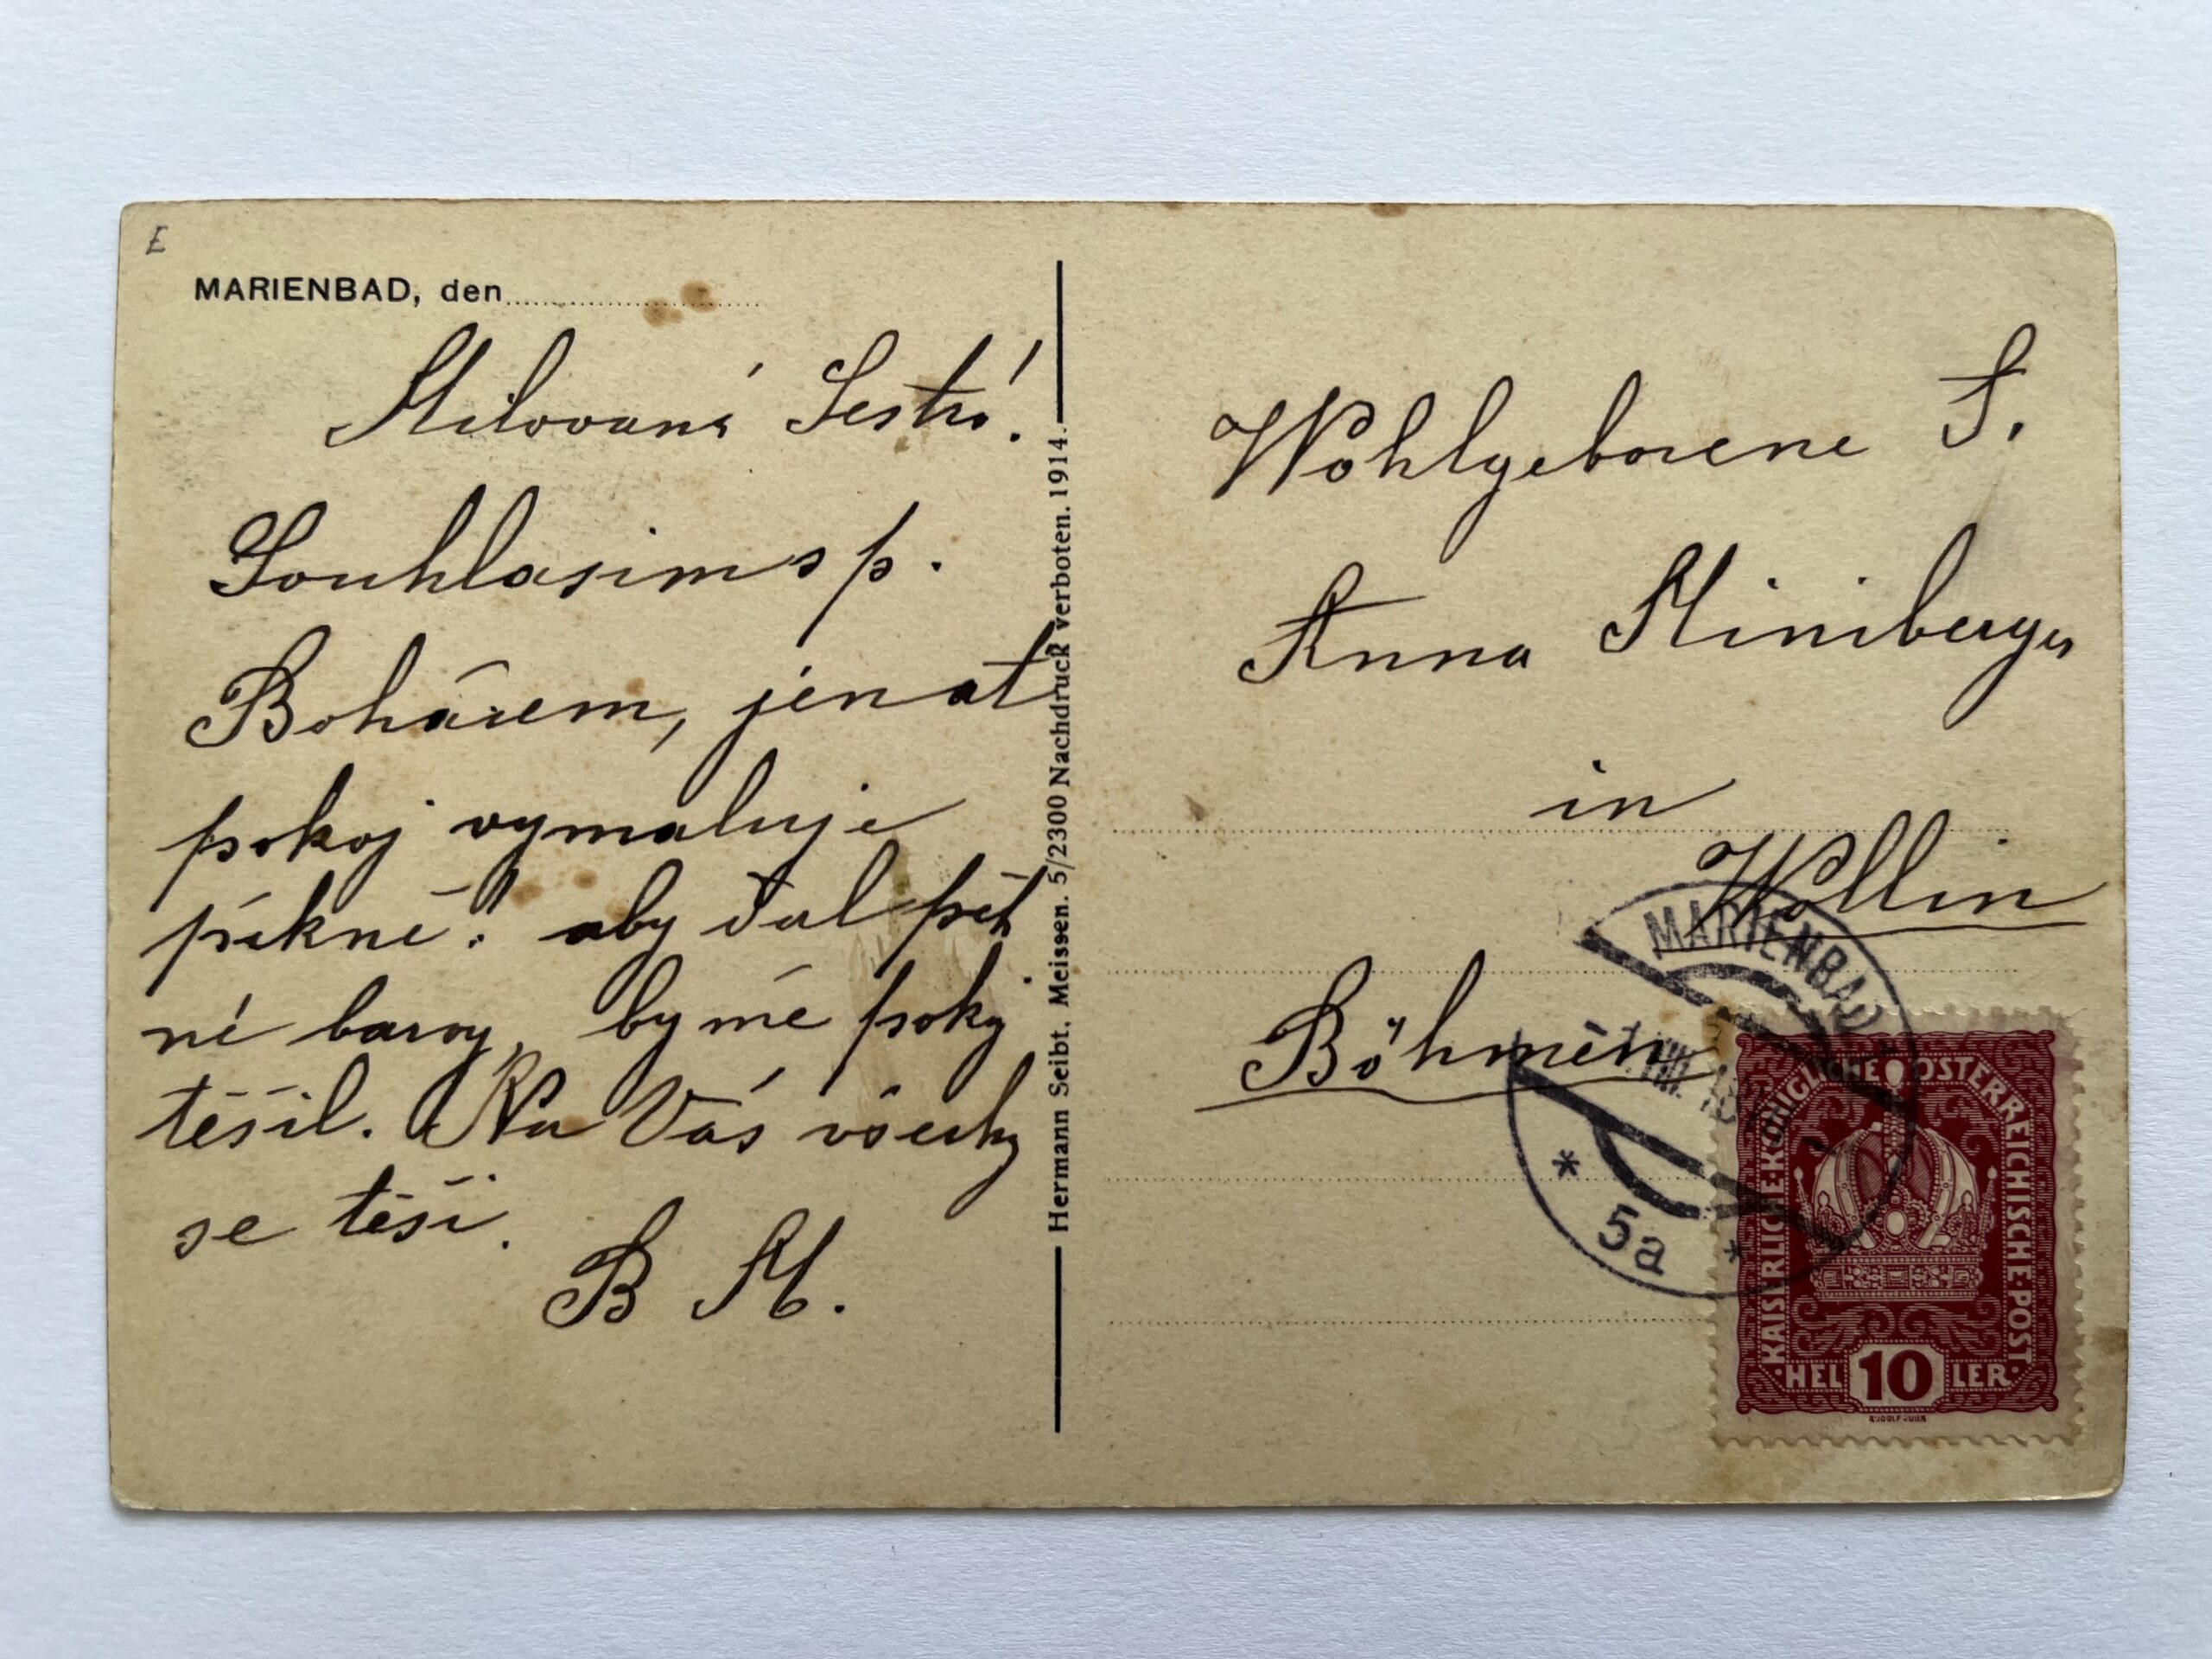 E
MARIENBAD, den
Milovaná Sestro!
Souhlasim s p.
Bohárem, jen at
pokoj vymaluje
pěkně! aby dal pěk
né barvy, by mě poky
těšil. Na Vás všecky
se těší.
B M.
Hermann Seibt, Meissen. 5/2300 Nachdruck verboten. 1914.
Wohlgeborene F.
Anna Miniberger
in
Wollin
Böhmen
MARIENBAD
VIII 18
* 5a *
KAISERLICHE KÖNIGLICHE ÖSTERREICHISCHE POST
HEL 10 LER
RUDOLF JUNK